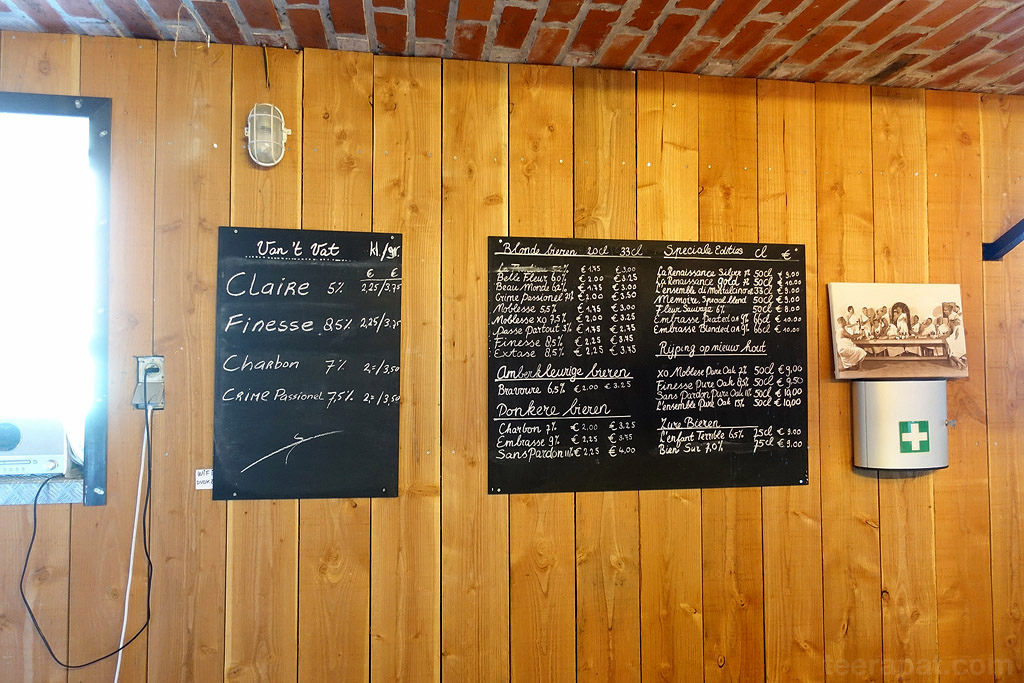 Van 't Vat kl/gr.
€ €
Claire 5% 2,25/3,75
Finesse 8,5% 2,25/3,75
Charbon 7% 2,=/3,50
Crime Passionel 7,5% 2,=/3,50
Blonde bieren 20cl 33cl
€ 1.75 € 3.00
Belle Fleur 6% € 2.00 € 3.25
Beau Monde € 1.75 € 3.00
Crime Passionel € 2.00 € 3.50
Noblesse 5,5% € 1.75 € 3.00
Noblesse XO 7,5% € 2.00 € 3.25
Passe Partout € 1.75 € 2.75
Finesse 8,5% € 2,25 € 3.75
Extase 8,5% € 2,25 € 3.75
Amberkleurige bieren
Bravoure 6,5% € 2.00 € 3.25
Donkere bieren
Charbon 7% € 2,00 € 3.25
Embrasse 9% € 2,25 € 3.75
Sans Pardon 11% € 2,25 € 4,00
Speciale Edities cl €
La Renaissance Silver 50cl € 9.00
La Renaissance gold 50cl
L'ensemble di Montalcino 33cl € 9.00
Memoire, Special blend 50cl € 9.00
Fleur Sauvage 50cl € 8.00
Embrasse Peated 9% 66cl € 10.00
Embrasse Blended 9% 66cl € 10.00
Rijping op nieuw hout
XO Noblesse Pure Oak 50cl € 9,00
Finesse Pure Oak 8,5% 50cl € 9,50
Sans Pardon Pure Oak 11% 50cl € 10,00
L'ensemble Pure Oak 50cl € 10,00
Zure Bieren
L'enfant Terrible 6,5% 75cl € 9.00
Bien Sur 7,0% 75cl € 9.00
teerapat.com